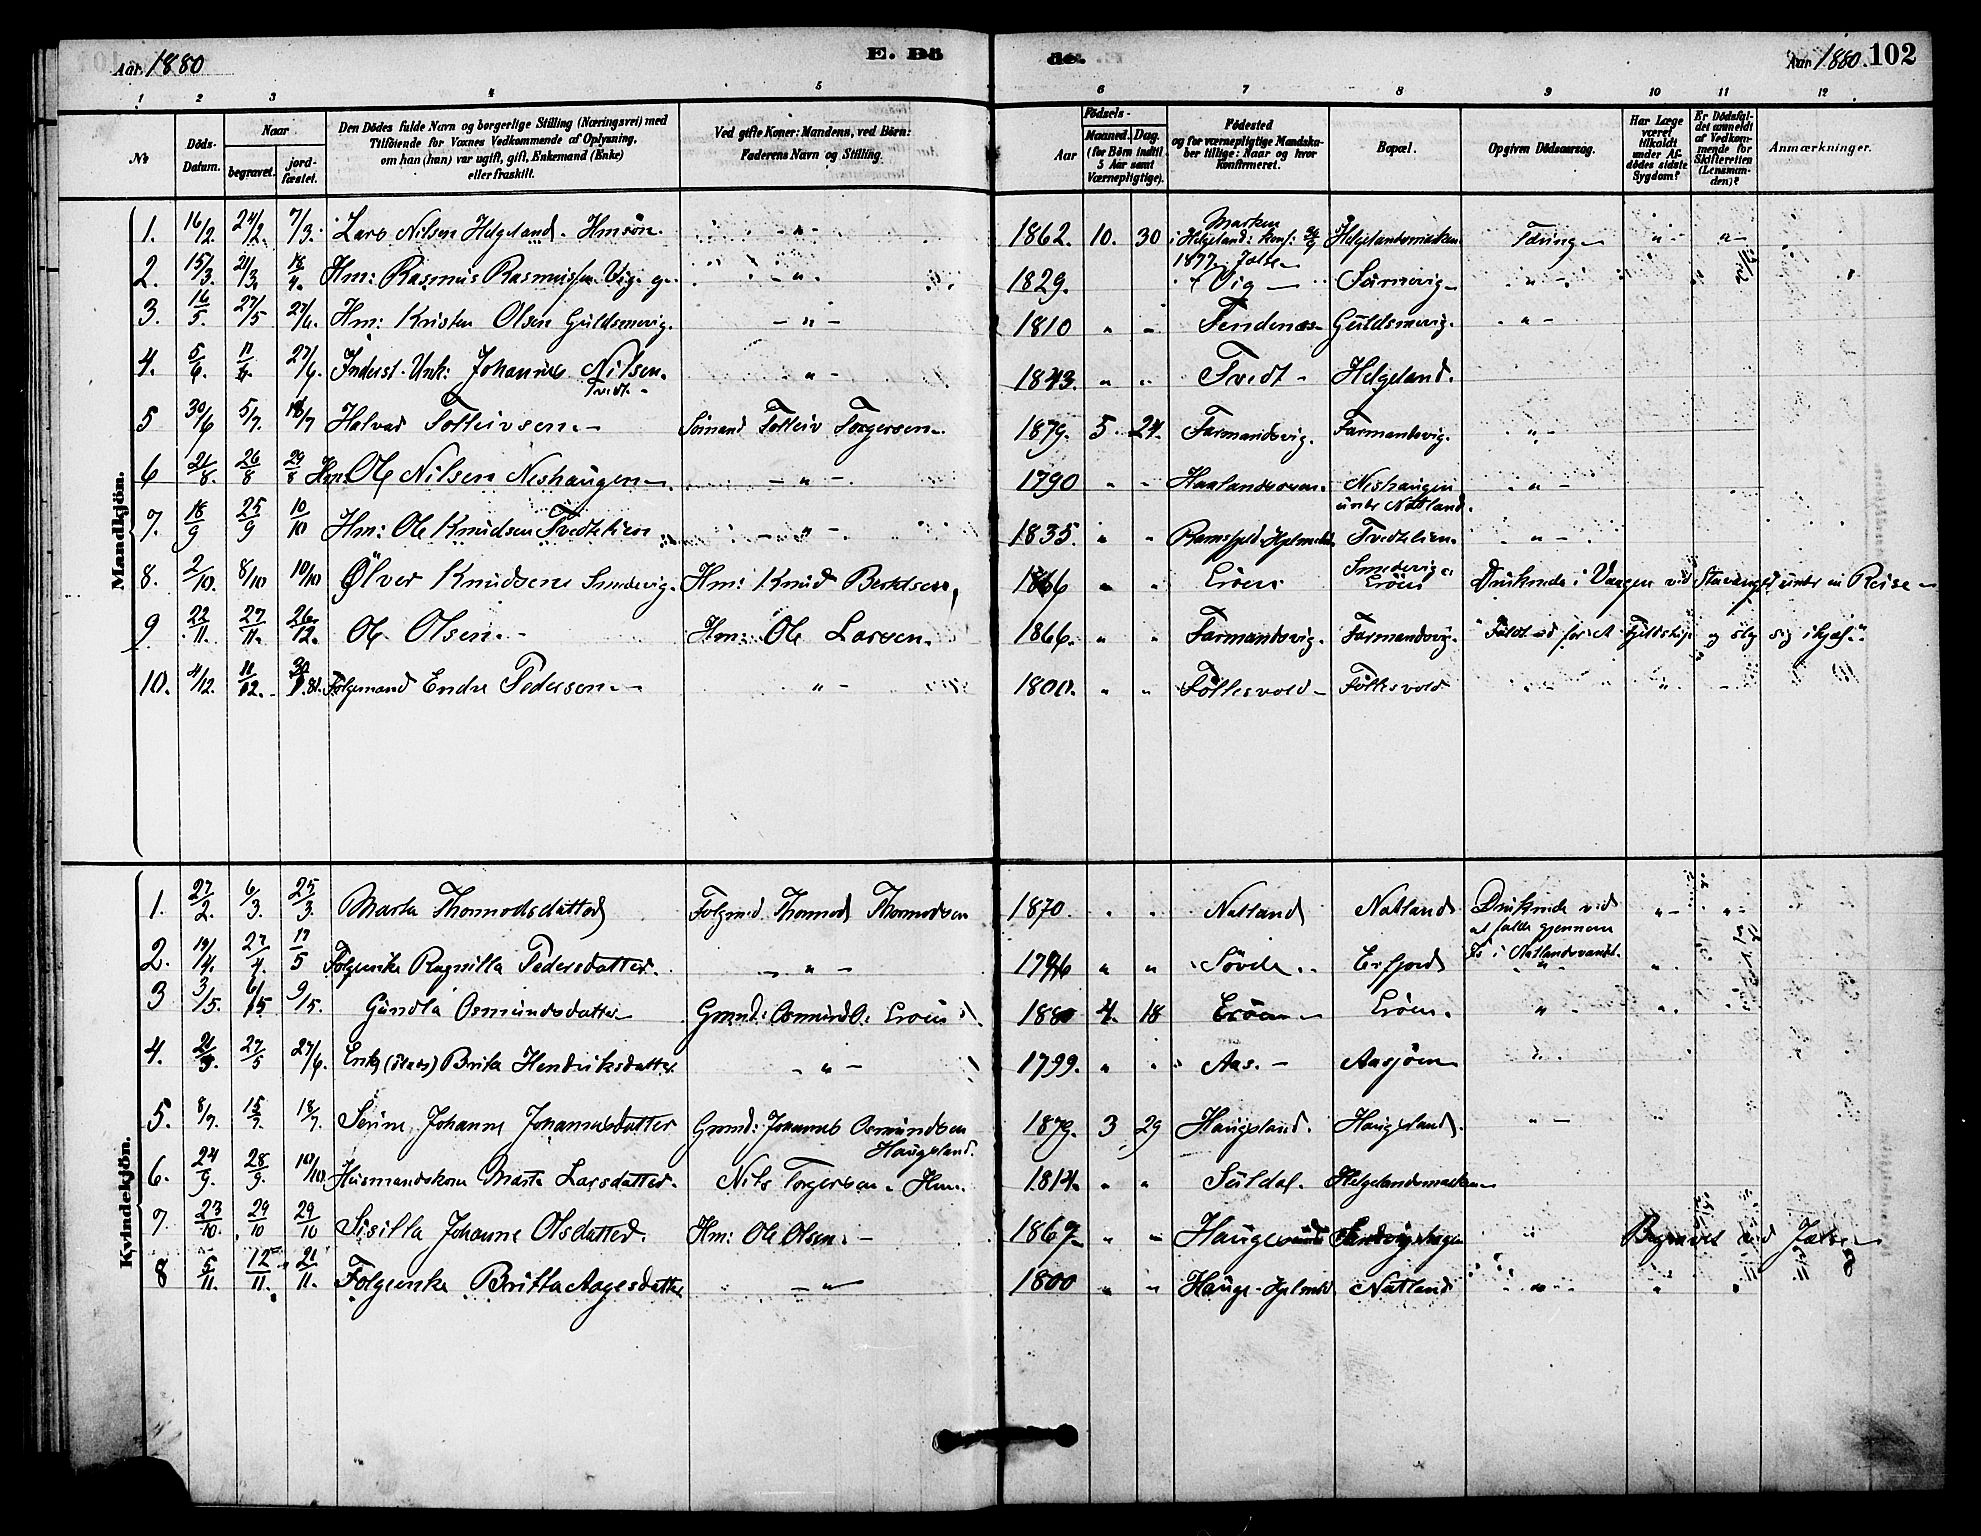 Aar 1880
E. Dö
de.
Aar 1880. 102
1 2 3 4 5 6 7 8 9 10 11 12
No
Döds-Datum.
Naar
begravet.
jord-fæstet.
Den Dödes fulde Navn og borgerlige Stilling (Næringsvei) med
Tilföiende for Voxnes Vedkommende af Oplysning,
om han (hun) var ugift, gift, Enkemand (Enke)
eller fraskilt.
Ved gifte Koner: Mandens, ved Börn:
Faderens Navn og Stilling.
Födsels-
Aar
Maaned. Dag.
(for Börn indtil
5 Aar samt
Værnepligtige).
Födested
og for værnepligtige Mandska-
ber tillige: Naar og hvor
Konfirmeret.
Bopæl.
Opgiven Dödsaarsag.
Har Læge
været
tilkaldt
under Af-
dödes sidste
Sygdom?
Er Dödsfal-
det anmeldt
af Vedkom-
mende for
Skifteretten
(Lensman-
den)?
Anmærkninger.
Mandkjön.
1. 16/2. 24/2. 7/3. Lars Nilsen Helgeland. Hmsön. " 1862. 10. 30 Marken i Helgeland: Konf: 1877. Jelse Helgelandsmarken Tæring " "
2. 15/3. 21/3. 18/4. Hm: Rasmus Rasmussen Vig. g. " 1829. Vig Sørrevig "
3. 16/5. 27/5 27/6. Hm: Kristen Olsen Guldsmevig. " 1810 " " Tendenæs Guldsmevig. "
4. 5/6. 11/6. 27/6. Inderst Unk: Johannes Nilsen Tvedt. " 1843. " " Tvedt Helgeland.
5 30/6 5/7. 18/7 Halvad Tolleivsen. Sömand Tolleiv Torgersen. 1879. 5. 24. Farmandsvig. Farmandsvig. "
6 21/8. 26/8 29/8 Hm. Ole Nilsen Neshaugen " 1790 " " Neshaugen under Natland. "
7. 18/9 25/9 10/10 Hm: Ole Knudsen Tvedtelien " 1835. " " Tvedtelien. "
8. 2/10. 8/10 10/10 Ölver Knudsen Smedevig. Hm: Knud Berdtsen, 1866 " " Eröen Smedevig Eröen Druknede i Vaagen ved Stavanger under en Reise
9. 22/11. 27/11. 26/12. Ole Olsen. Hm: Ole Larsen. 1866. " " Farmandsvig. Farmandsvig. "Faldt ud for et Fjeldstup og slog sig ihjel."
10. 4/12. 11/12. Folgemand Endre Pedersen " 1800. " " Föllesvold Föllesvold " "
Kvindekjön.
1. 27/2. 6/3. 25/3. Marta Thormodsdatter Folgmd. Thormod Thormodsen 1870. " " Natland Natland Druknede ved at falde gjennem Is i Natlandsvandet. " "
2. 19/4. 27/4. 19/5 Folgeenke Ragnilla Pedersdatter. " " " Sövde Erfjord " "
3 3/5. 6/5 9/5. Gundla Osmundsdatter Grmd: Osmund O. Eröen 1880 4. 18 Eröen Eröen. " "
4. 21/5. 27/5 27/6. Brita Hendriksdatter " 1799. " " Aas. Aasjöen "
5. 8/7. 15/7. 18/7. Serine Johanne Johannesdatter Grmd: Johannes Osmundsen Haugeland. 1879. 3 29 Haugeland. Haugeland. "
6. 24/9. 28/9. 10/10. Husmandskone Marta Larsdatter. Nils Torgersen. Hm. 1814. " " Suldal. Helgelandsmarken
7 23/10. 29/10 29/10 Sisilla Johanne Olsdatter. Hm: Ole Olsen. 1867 " " " Begravet ved Jelse
8 5/11. 12/11. 21/11. Folgeenke Britta Aagesdatter " 1800 " " Hauge Hjelmeld Natland " " "